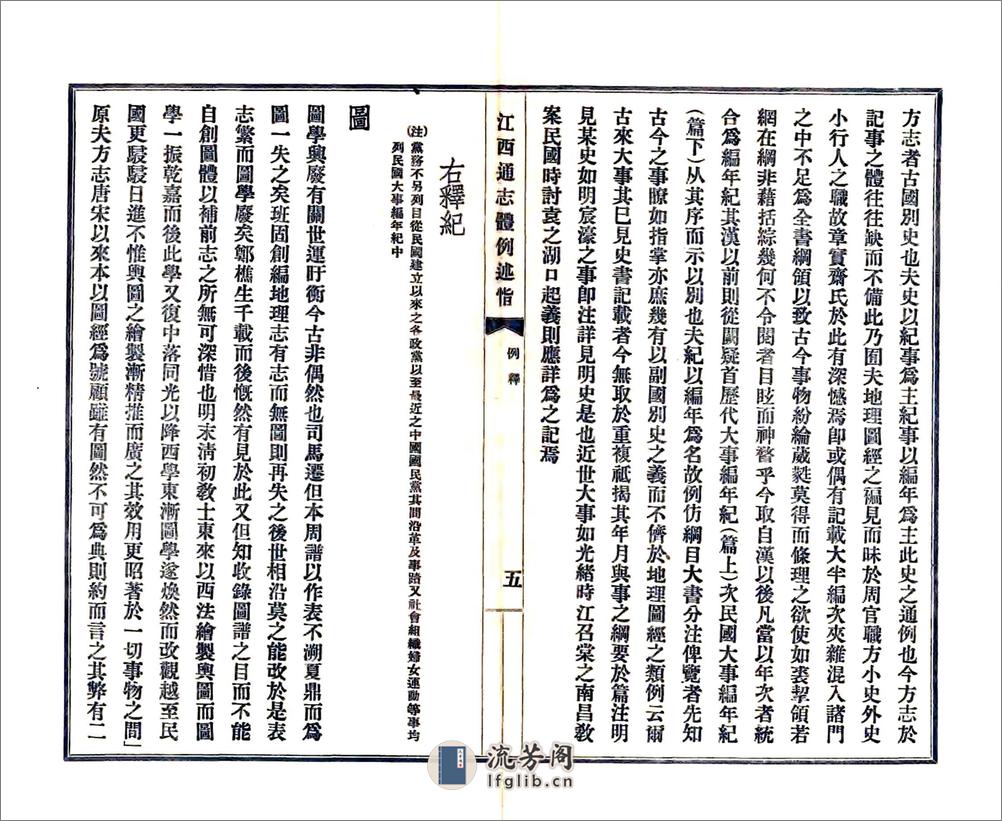 方志者古國別史也夫史以紀事爲主紀事以編年爲主此史之通例也今方志於
記事之體往往缺而不備此乃囿夫地理圖經之褊見而昧於周官職方小史外史
小行人之職故章實齋氏於此有深憾焉卽或偶有記載大半編次夾雜混入諸門
之中不足爲全書綱領以致古今事物紛綸葳蕤莫得而條理之欲使如裘挈領若
網在綱非藉括綜幾何不令閱者目眩而神瞀乎今取自漢以後凡當以年次者統
合爲編年紀其漢以前則從闕疑首歷代大事編年紀(篇上)次民國大事編年紀
(篇下)从其序而示以別也夫紀以編年爲名故例仿綱目大書分注俾覽者先知
古今之事瞭如指掌亦庶幾有以副國別史之義而不儕於地理圖經之類例云爾
古來大事其已見史書記載者今無取於重複祗揭其年月與事之綱要於篇注明
見某史如明宸濠之事卽注詳見明史是也近世大事如光緒時江召棠之南昌敎
案民國時討袁之湖口起義則應詳爲之記焉
江西通志體例述恉
例釋
五
右釋紀
(注)黨務不另列目從民國建立以來之各政黨以至最近之中國國民黨其間沿革及事蹟又社會組織婦女運動等事均
列民國大事編年紀中
圖
圖學興廢有關世運盱衡今古非偶然也司馬遷但本周譜以作表不溯夏鼎而爲
圖一失之矣班固創編地理志有志而無圖則再失之後世相沿莫之能改於是表
志繁而圖學廢矣鄭樵生千載而後慨然有見於此又但知收錄圖譜之目而不能
自創圖體以補前志之所無可深惜也明末淸初敎士東來以西法繪製輿圖而圖
學一振乾嘉而後此學又復中落同光以降西學東漸圖學遂煥然而改觀越至民
國更駸駸日進不惟輿圖之繪製漸精推而廣之其效用更昭著於一切事物之間」
原夫方志唐宋以來本以圖經爲號顧雖有圖然不可爲典則約而言之其弊有二
流芳阁
lfglib.cn